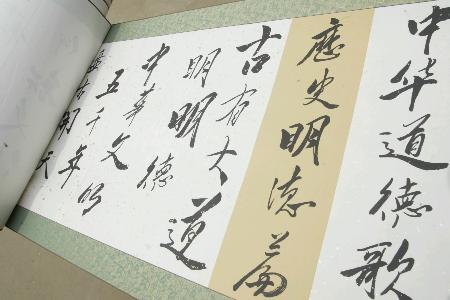 中华道德歌
歷史明德篇
古有大道
明明德
中華文
五千年